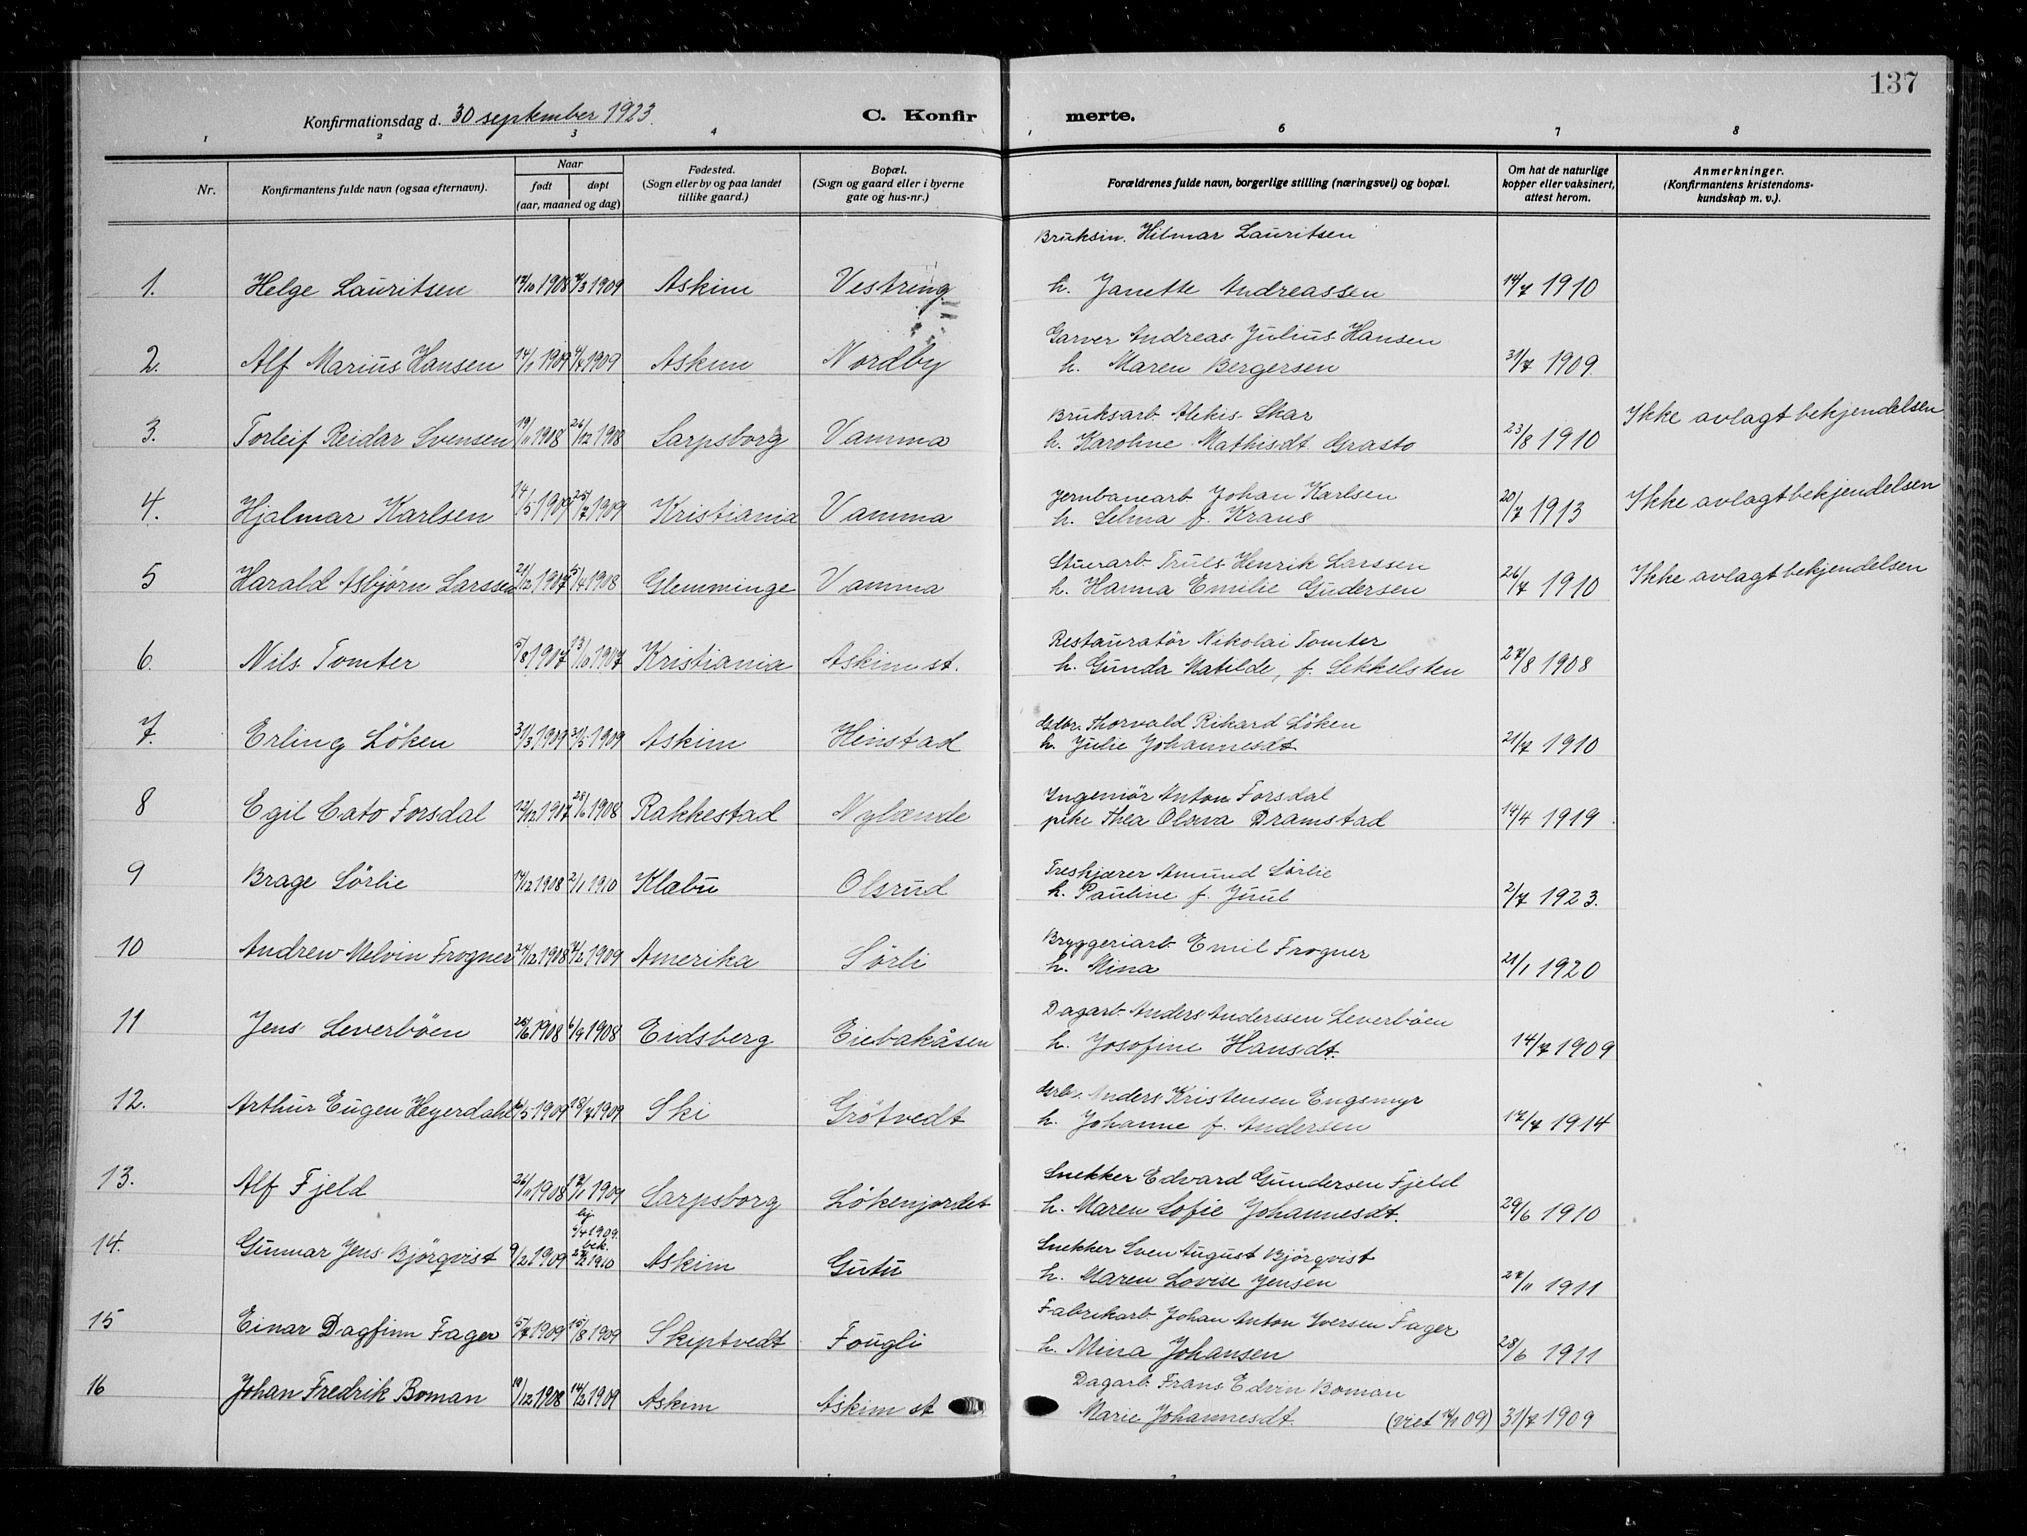 137
Konfirmationsdag d. 30 september 1923.
C. Konfirmerte.
1 2 3 4 6 7 8
Nr.
Konfirmantens fulde navn (ogsaa efternavn).
Naar
født døpt
(aar, maaned og dag)
Fødested.
(Sogn eller by og paa landet
tillike gaard.)
Bopæl.
(Sogn og gaard eller i byerne
gate og hus-nr.)
Forældrenes fulde navn, borgerlige stilling (næringsvei) og bopæl.
Om hat de naturlige
kopper eller vaksinert,
attest herom.
Anmerkninger.
(Konfirmantens kristendoms-
kundskap m. v.).
Hilmar Lauritsen
1. Helge Lauritsen 1908 1909 Askim Vestring h. Janette Andreassen 14/7 1910
Garver Andreas Julius Hansen
2. Alf Marius Hansen 14/1 1909 1909 Askim Nordby h. Maren Bergersen 31/7 1909
Bruksarb. Aleksis Skar
3. Torleif Reidar Svensen 19/11 1908 26/12 1908 Sarpsborg Vamma h. Karoline Mathisdt. Grasto 23/8 1910 Ikke avlagt bekjendelsen
Jernbanearb. Johan Karlsen
4. Hjalmar Karlsen 14/5 1909 25/7 1909 Kristiania Vamma h. Selma f. Kraus 20/7 1913 Ikke avlagt bekjendelsen
Truls Henrik Larssen
5 Harald Asbjørn Larssen 21/12 1907 5/4 1908 Glemminge Vamma h. Hanna Emilie Gudersen 26/7 1910 Ikke avlagt bekjendelsen
Restauratör Nikolai Tomter
6. Nils Tomter 5/8 1907 13/10 1907 Kristiania Askim st. h. Gunda Matilde, f. Sekkelsten 27/8 1908
Thorvald Rikard Löken
7. Erling Löken 31/3 1909 31/5 1909 Askim Henstad h. Julie Johannesdt 21/7 1910
Ingeniör Anton Forsdal
8 Egil Cato Forsdal 1907 28/6 1908 Rakkestad Nylænde pike Thea Dramstad 14/4 1919
Treskjærer Amund Sörlie
9 Brage Sörlie 1908 2/1 1910 Klabu Olsrud h. Pauline f. Juul 2/7 1923.
Bryggeriarb. Emil Frogner
10 Andrew Melvin Frogner 24/12 1908 1909 Amerika Sörli h. Mina 21/1 1920
Dagarb. Anders Anderssen Leverböen
11 Jens Leverböen 1908 6/9 1908 Eidsberg Eiebakåsen h. Josofine Hansdt. 14/7 1909
Anders Kristensen Engsmyr
12. Arthur Eugen Heyerdahl 1909 18/7 1909 Ski Grötvedt h. Johanne f. Andersen 17/7 1914
Snekker Edvard Gundersen Fjeld
13. Alf Fjeld 26/11 1908 1909 Sarpsborg Lökenjordet h. Maren Sofie Johannesdt. 29/6 1910
hj.
6/4 1909.
bek.
Snekker Sven August Björqvist
14. Gunnar Jens Björqvist 9/2 1909 1910 Askim Gutu h. Maren Lovise Jensen 27/11 1911
Fabrikarb. Johan Anton Iversen Fager
15 Einar Dagfinn Fager 5/7 1909 15/8 1909 Skiptvedt Fougli h. Mina Johansen 28/6 1911
Dagarb. Frans Edvin Boman
16 Johan Fredrik Boman 19/12 1908 14/2 1909 Askim Askim st Marie Johannesdt. (viet 09) 31/7 1909